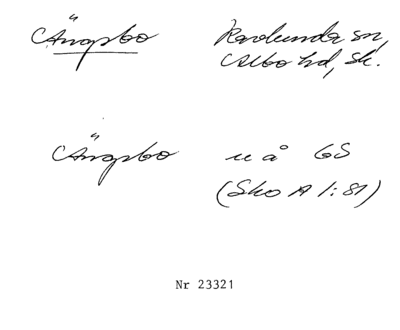 Ängsbo Ravlunda sn,
Albo hd, Sk.
Ängsbo u å GS
(Sko A 1:81)
Nr 23321